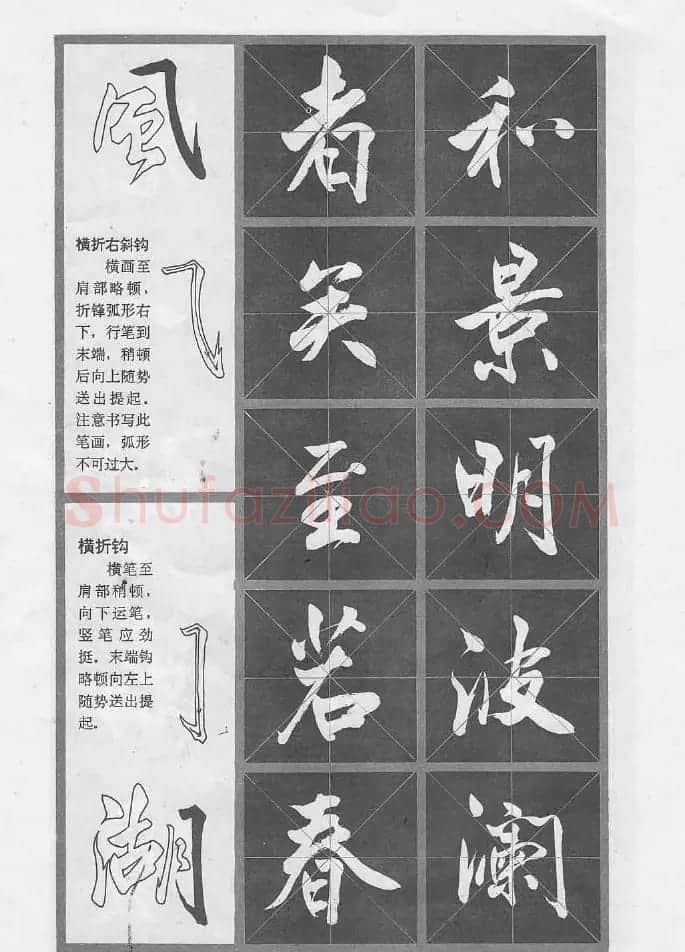 風
横折右斜钩
横画至
肩部略顿，
折锋弧形右
下，行笔到
末端，稍顿
后向上随势
送出提起。
注意书写此
笔画，弧形
不可过大。
横折钩
横笔至
肩部稍顿，
向下运笔，
竖笔应劲
挺，末端钩
略顿向左上
随势送出提
起。
湖
者矣至若春
和景明波澜
Shufaziliao.COM